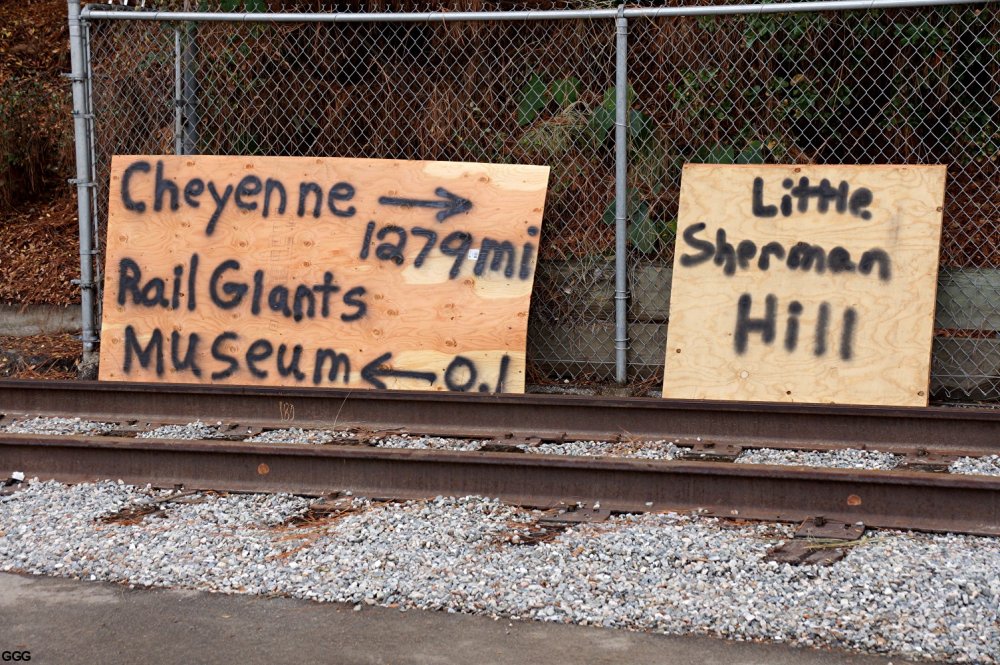 Cheyenne →
1279 mi
Rail Giants
Museum ← 0.1
Little
Sherman
Hill
GGG